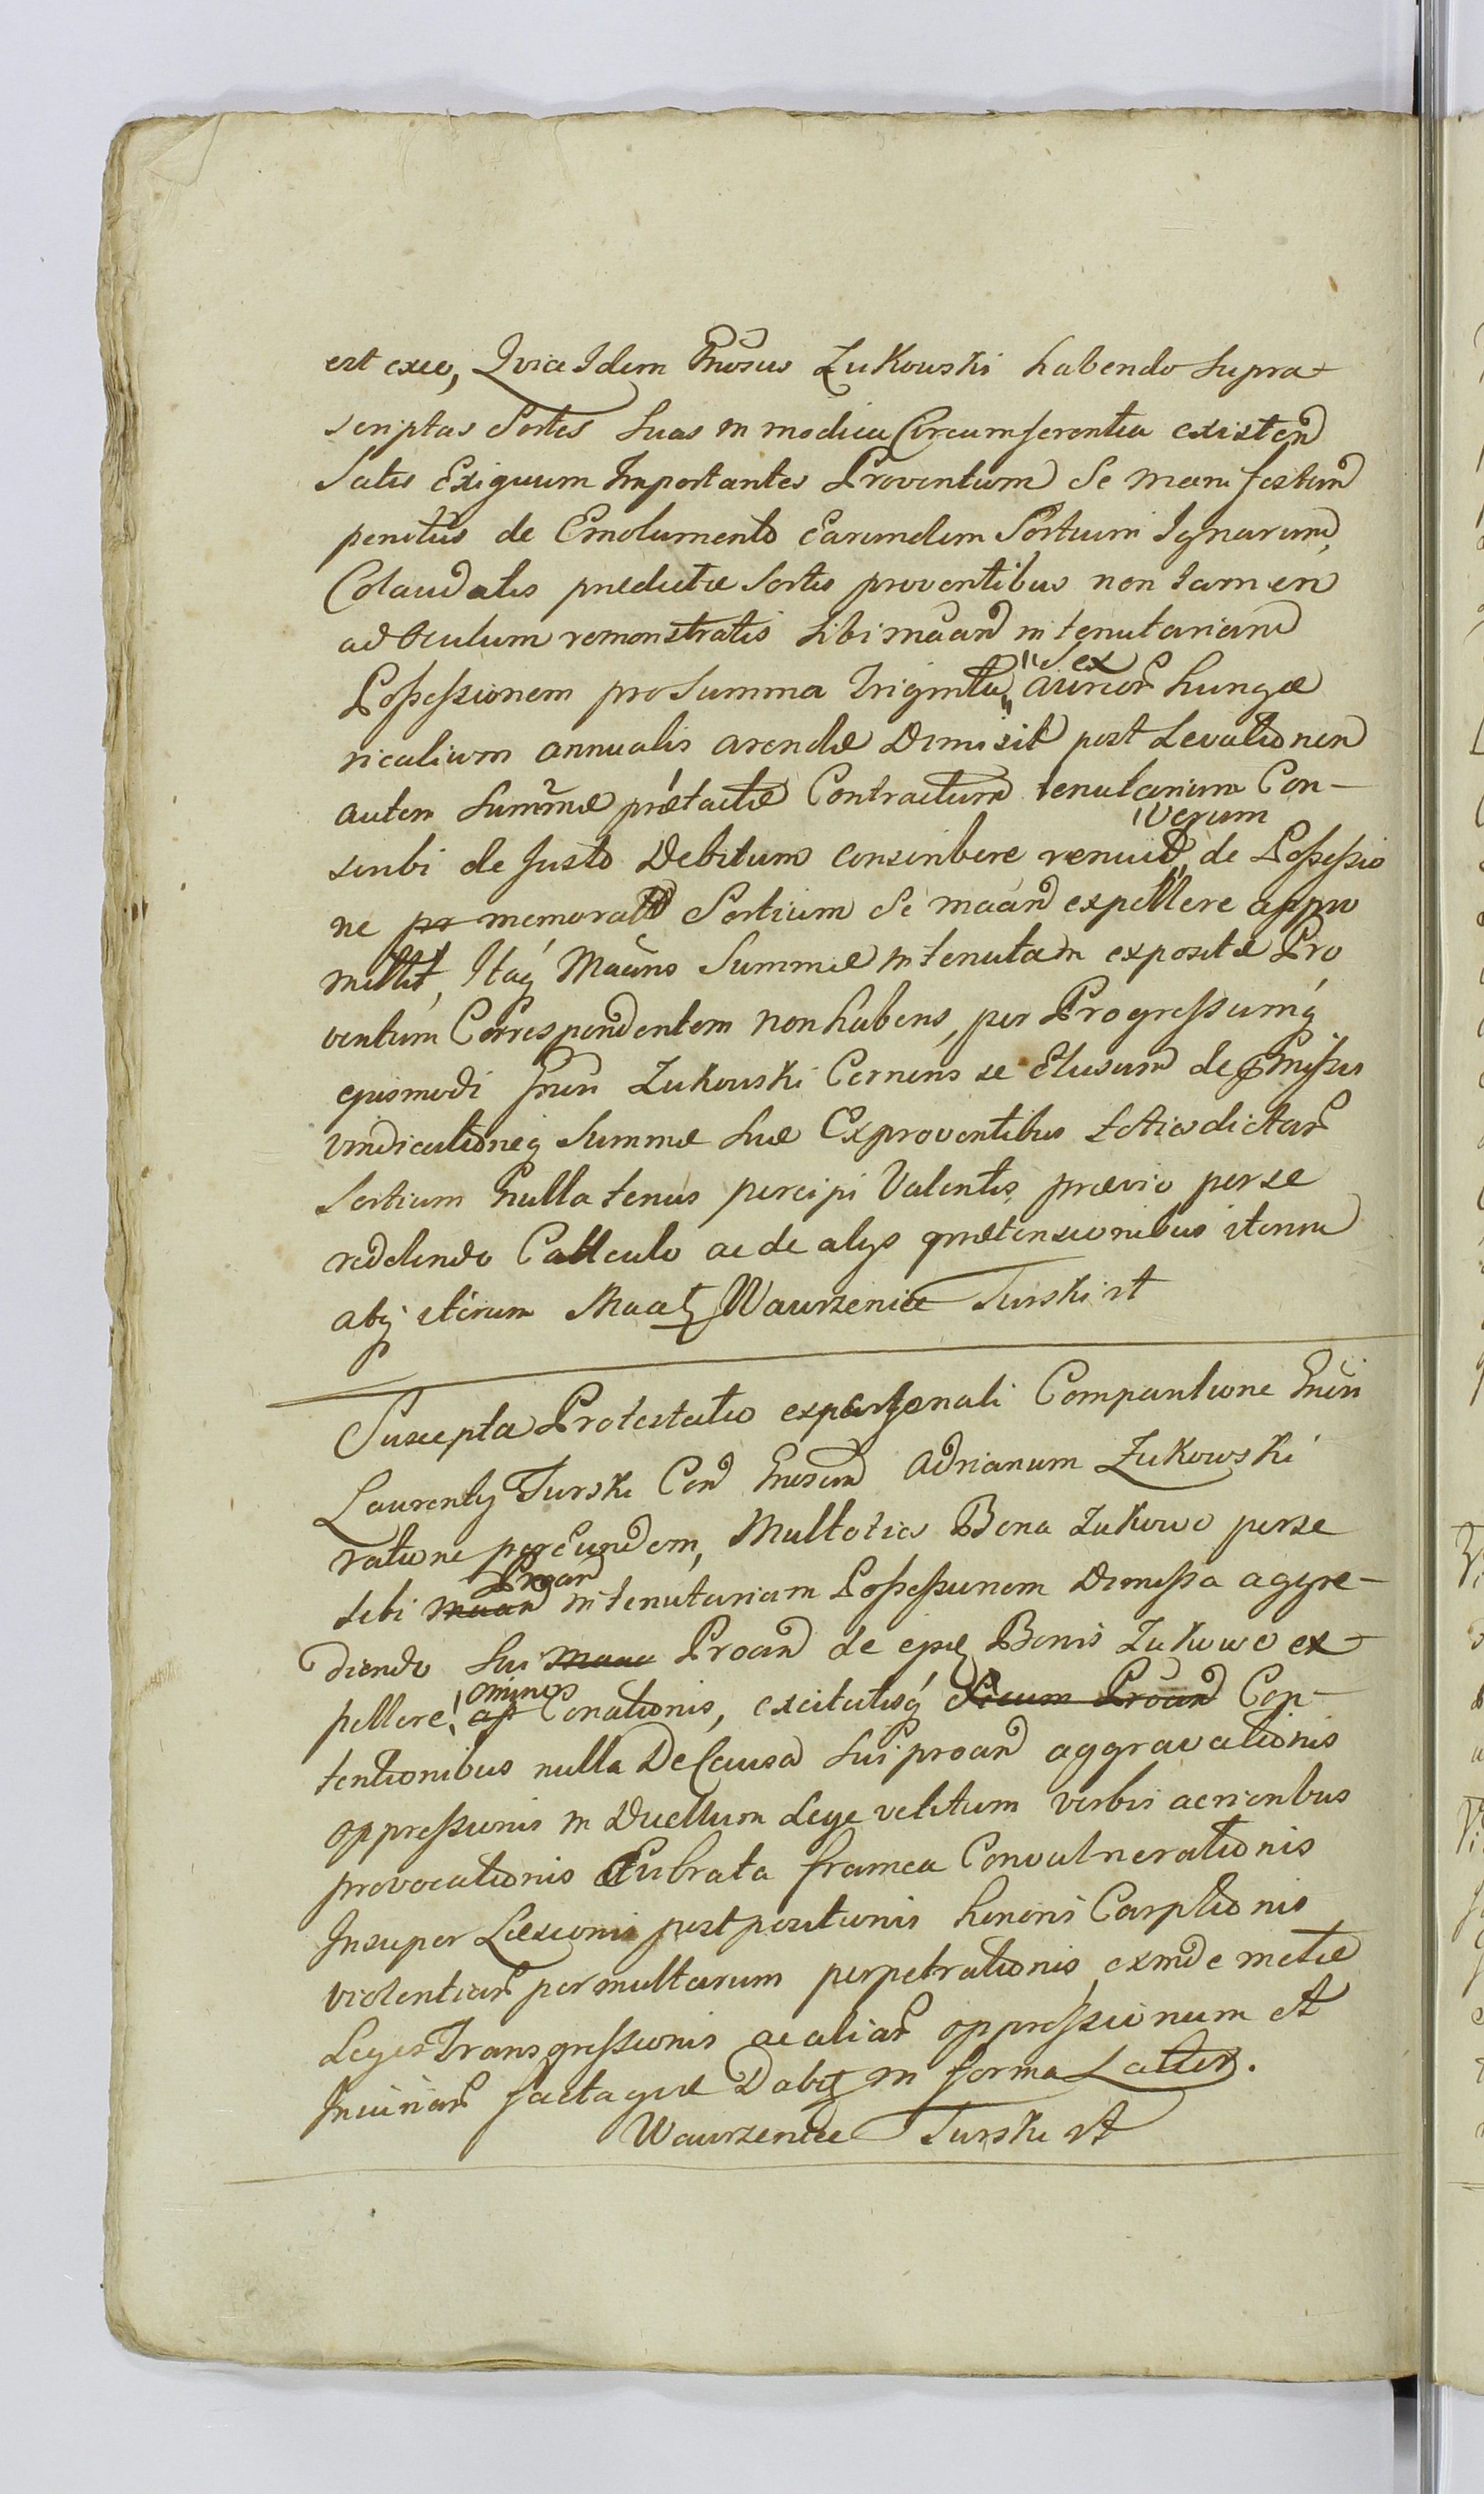 est exeo, Quia Idem Gnosus Zukowski habendo Supra
scriptas Sortes Suas in modica Circumferentia existend
Satis Exiguum Importantes Proventum Se manifestand
penitus de Emolumento Earumdem Sortium Ignarum,
Colaudatis praedictae Sortis proventibus non tamen
ad Oculum remonstratis Sibi maand in tenutariam
Possessionem pro Summa Triginta sex aureor Hunga
ricalium annualis arendae Dimisit post Levationem
autem Summae praetactae Contractum tenutarium Con-
scribi de Justo Debitum conscribere renuit, verum de Possessio
ne pr memorat Sortium Se maand expellere appro
mittit, Itaq Maans Summae in tenutam expositae Pro
ventum Correspondentem non habens, per Progressumq
ejusmodi Gnosi Zukowski Cernens se Elusum de Praemissis
vindicationeq Summae Suae Ex proventibus totiesdictar
Sortium nulla tenus percipi Valentis, praevio per se
reddendo Callculo ac de alys praetensionibus iterum
atq iterum Maat Wawrzeniec Turski st
Suscepta Protestatio ex personali Comparitione Gnosi
Laurenty Turski Con Gnosum Adrianum Zukowski
ratione per Eundem, Multoties Bona Zukowo per se
sibi maand Proand in tenutariam Possessionem Dimissa aggre-
diendo Sui maan Proand de ejsq Bonis Zukowo ex
pellere, ap ominos Conationis, excitatisq Secum Proand Con-
tentionibus nulla De Causa Sui proand aggravationis
oppressionis in Duellum Lege vetitum verbis acrioribus
provocationis Evibrata framea Convulnerationis
Insuper Laesionis postpositionis honoris Carptionis
violentiar permultarum perpetrationis exinde metae
Leges Transgressionis ac aliar oppressionum et
Injuriar factaque Dabit in forma Latius.
Wawrzeniec Turski st